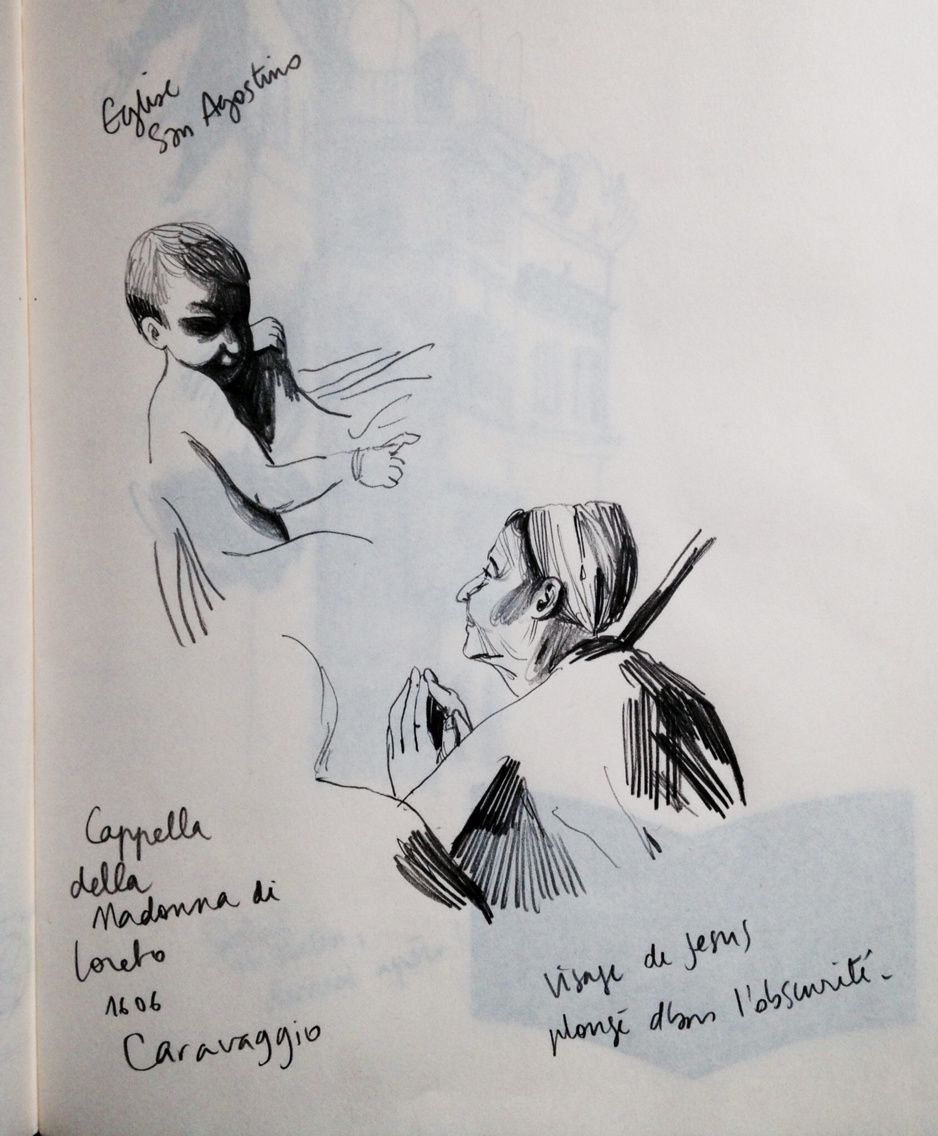 Eglise
San Agostino
Cappella
della
Madonna di
Loreto
1606
Caravaggio
visage de Jesus
plongé dans l'obscurité.